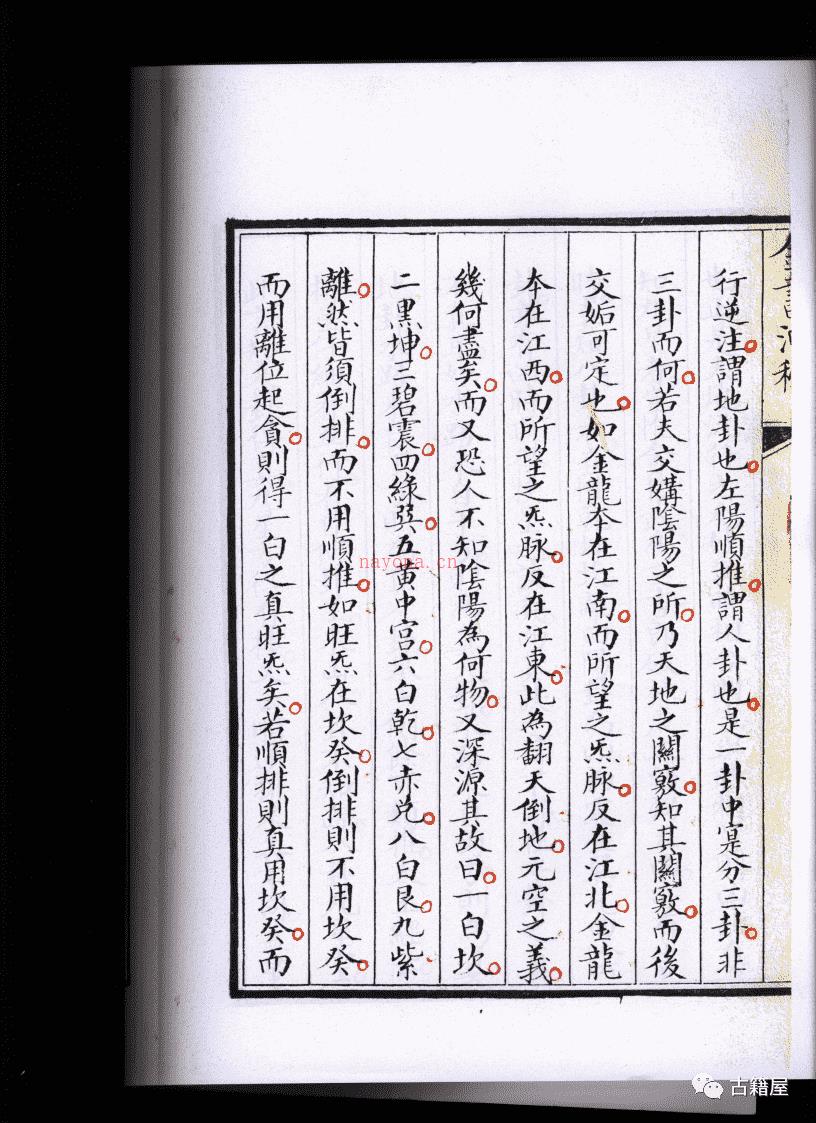 行逆注謂地卦也左陽順推謂人卦也是一卦中寔分三卦非
三卦而何若夫交媾陰陽之所乃天地之關竅知其關竅而後
交姤可定也如金龍本在江南而所望之炁脉反在江北金龍
本在江西而所望之炁脉反在江東此為翻天倒地元空之義
幾何盡矣而又恐人不知陰陽為何物又深源其故曰一白坎
二黑坤三碧震四綠巽五黃中宮六白乾七赤兌八白艮九紫
離然皆須倒排而不用順推如旺炁在坎癸倒排則不用坎癸
而用離位起貪則得一白之真旺炁矣若順排則真用坎癸而
nayona.cn
古籍屋